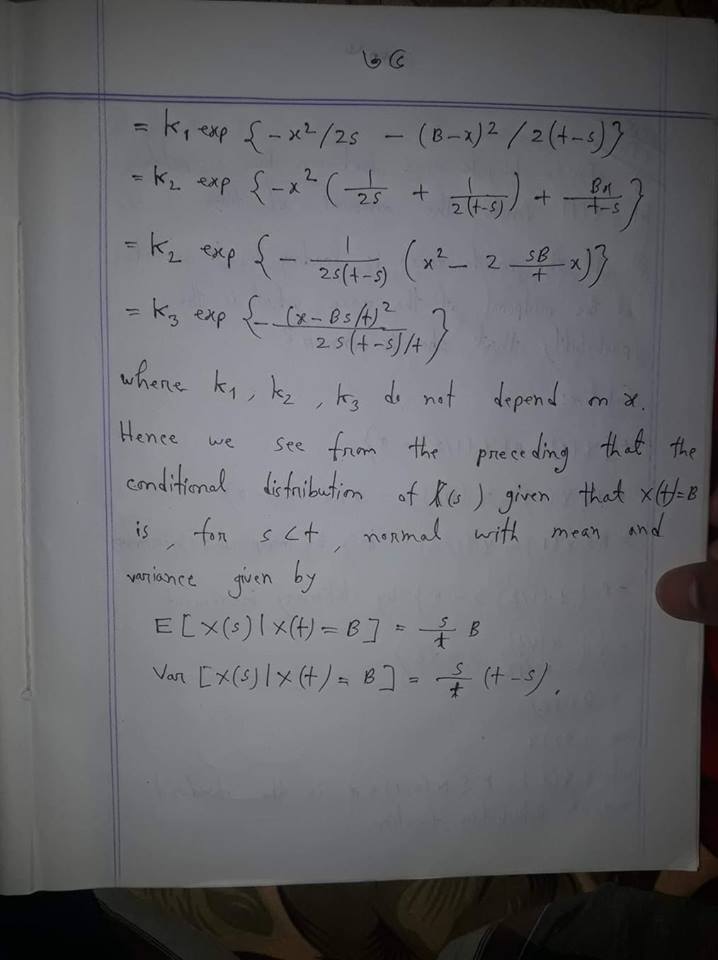 ৬৫
= K₁ exp {-x²/2s - (B-x)²/2(t-s)}
= K₂ exp {-x² (1/2s + 1/2(t-s)) + Bx/t-s}
= K₂ exp {- 1/2s(t-s) (x² - 2 sB/t x)}
= K₃ exp {- (x - Bs/t)²/2s(t-s)/t}
where K₁, K₂, K₃ do not depend on x.
Hence we see from the preceding that the
conditional distribution of X(s) given that X(t)=B
is, for s<t, normal with mean and
variance given by
E[X(s)|X(t)=B] = s/t B
Var [X(s)|X(t)=B] = s/t (t-s).